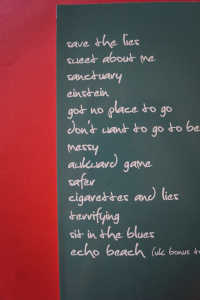 save the lies
sweet about me
sanctuary
einstein
got no place to go
don't want to go to be
messy
awkward game
safer
cigarettes and lies
terrifying
sit in the blues
echo beach (uk bonus t